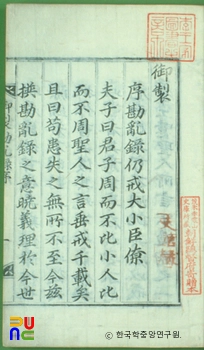 御製
序勘亂錄仍戒大小臣僚
夫子曰君子周而不比小人比
而不周聖人之言垂戒千載矣
且曰苟患失之無所不至今玆
撰勘亂錄之意曉義理於今世
御製勘亂錄序
한국학중앙연구원